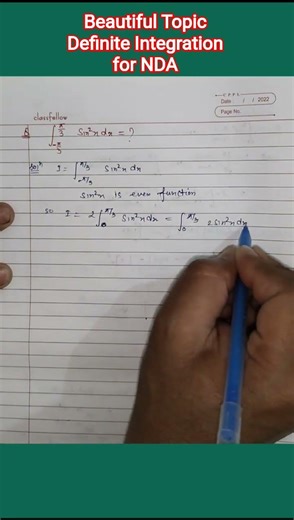 Beautiful Topic
Definite Integration
for NDA
classfellow
Date : / / 2022
Page No.
Q ∫_{-π/3}^{π/3} Sin²x dx = ?
Solⁿ I = ∫_{-π/3}^{π/3} Sin²x dx
Sin²x is even function
so I = 2 ∫_0^{π/3} Sin²x dx = ∫_0^{π/3} 2 Sin²x dx